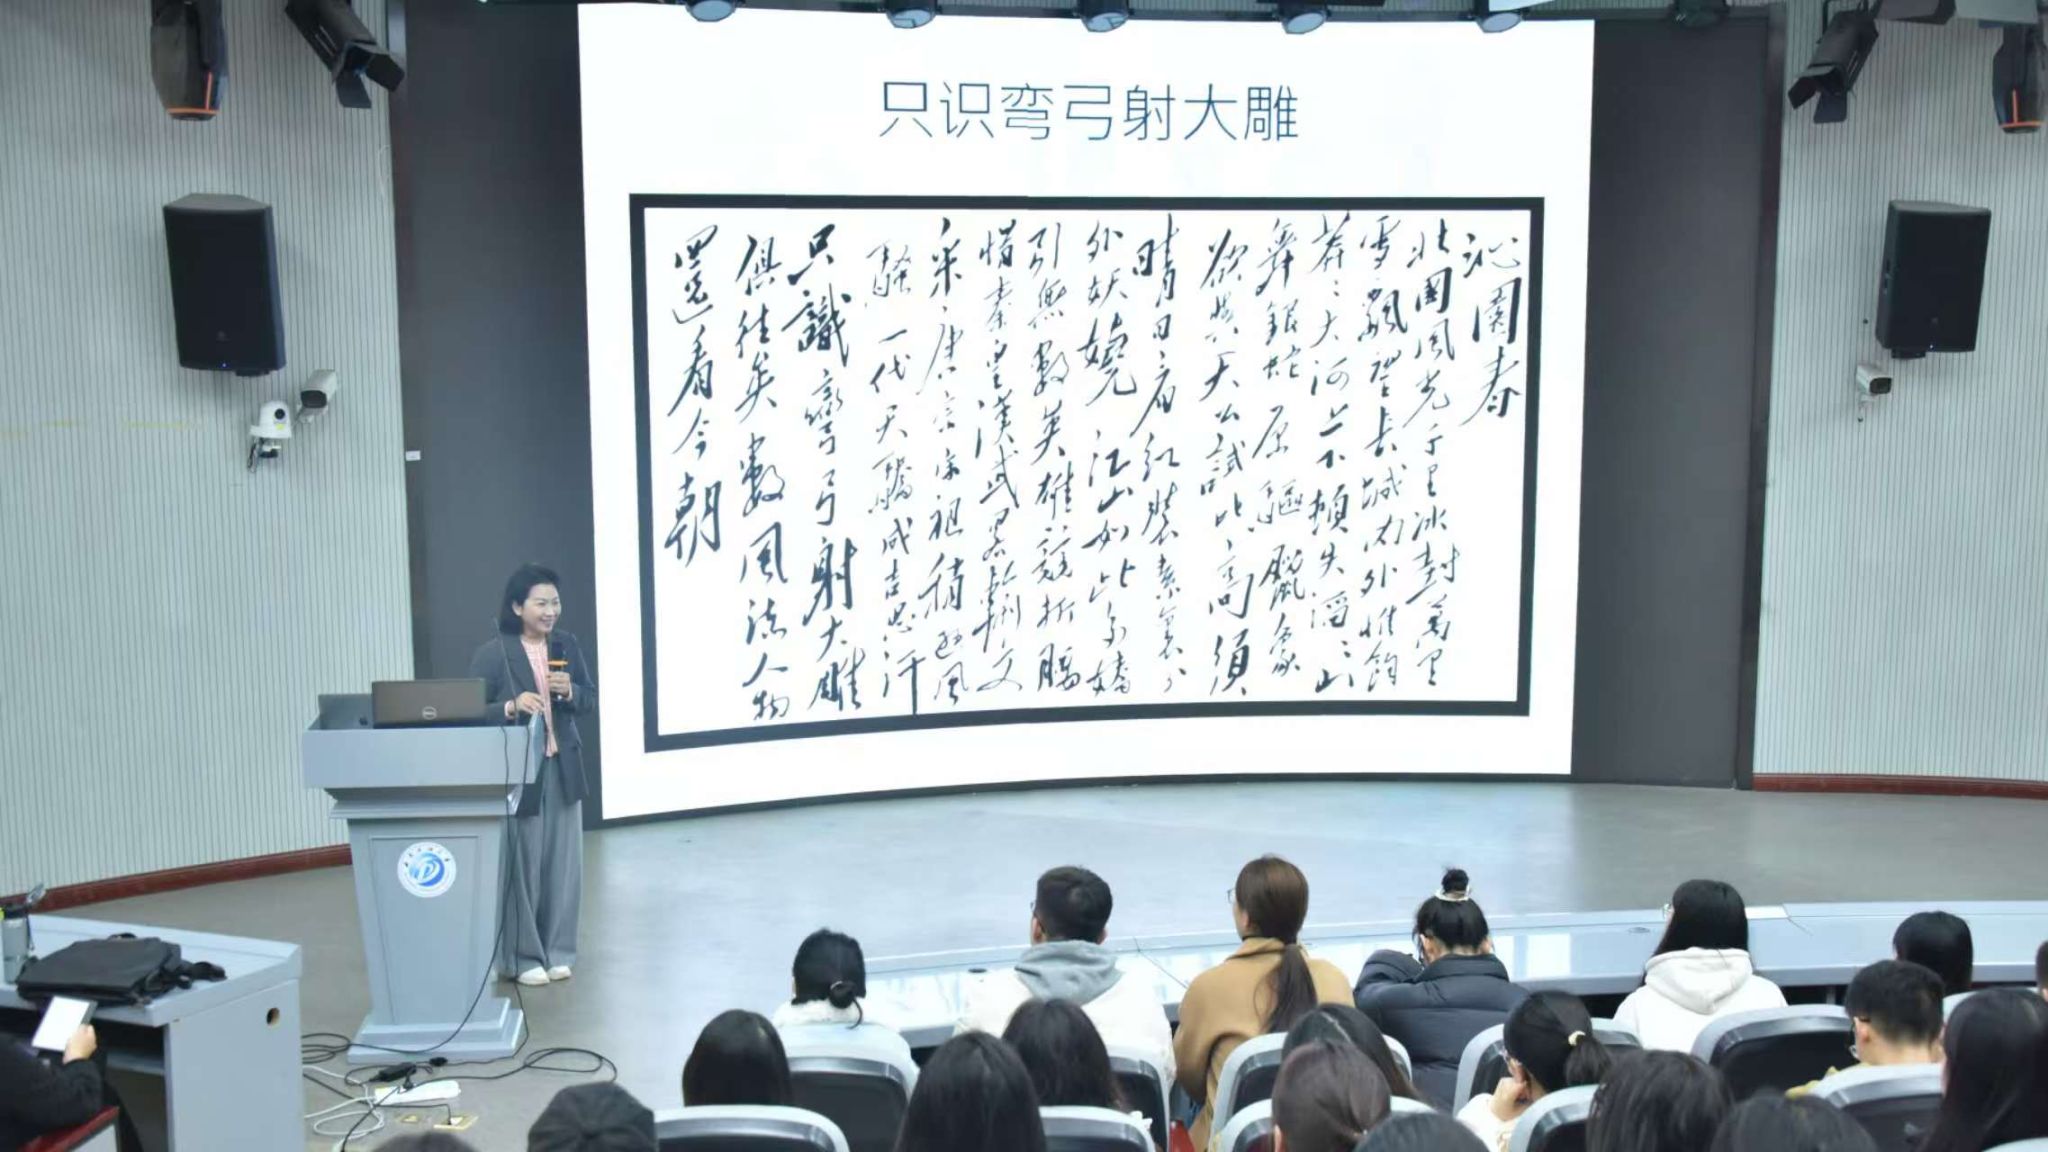 只识弯弓射大雕
沁園春
北國風光千里冰封萬里
雪飄望長城內外惟餘
莽莽大河上下頓失滔滔山
舞銀蛇原驅臘象
欲與天公試比高須
晴日看紅裝素裹分
外妖嬈江山如此多嬌
引無數英雄競折腰
惜秦皇漢武略輸文
采唐宗宋祖稍遜風
騷一代天驕成吉思汗
只識彎弓射大雕
俱往矣數風流人物
還看今朝
DELL